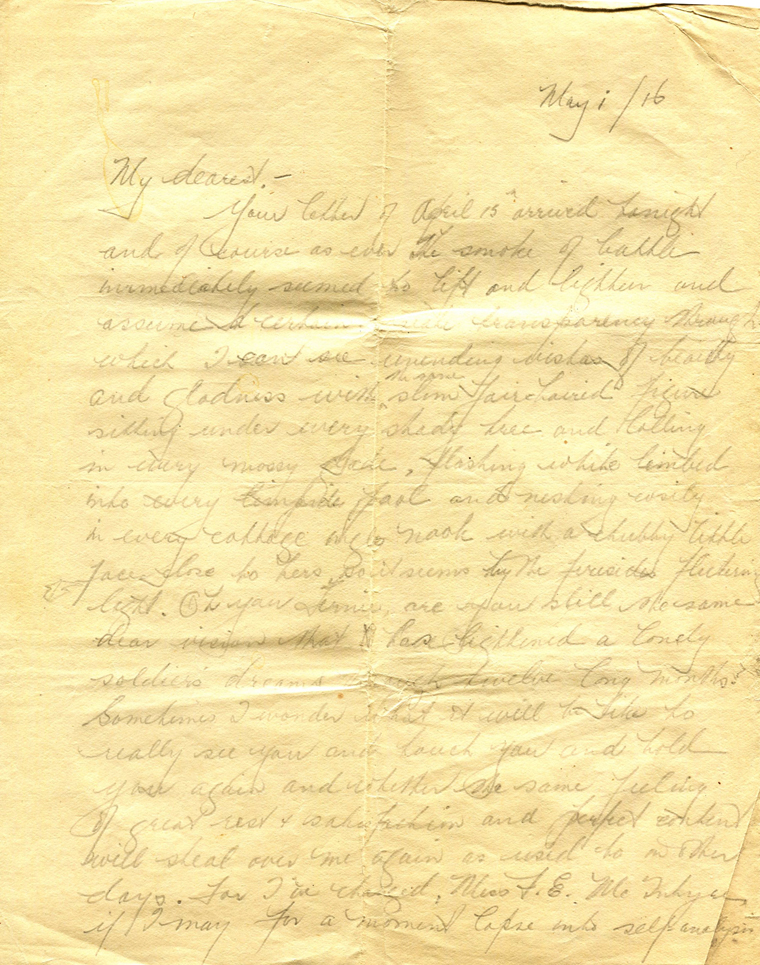 May 1/16
My dearest. -
Your letter of April 15" arrived tonight
and of course as ever the smoke of battle
immediately seemed to lift and lighten and
assume a certain transparency through
which I can see unending vistas of beauty
and gladness with the same slim fair haired figure
sitting under every shady tree and lolling
in every mossy , flashing white limbed
into every limpid pool and nesting cosily
in every cottage nook with a chubby little
face close to hers, so it seems by the firesides flickering
light. Oh you , are you still the same
dear vision that has lightened a lonely
soldier's dreams through twelve long months?
Sometimes I wonder what it will be like to
really see you and touch you and hold
you again and whether the same feeling
of great rest & satisfaction and perfect content
will steal over me again as used to in other
days. For I've changed, Miss F. E.
if I may for a moment lapse into self analysis